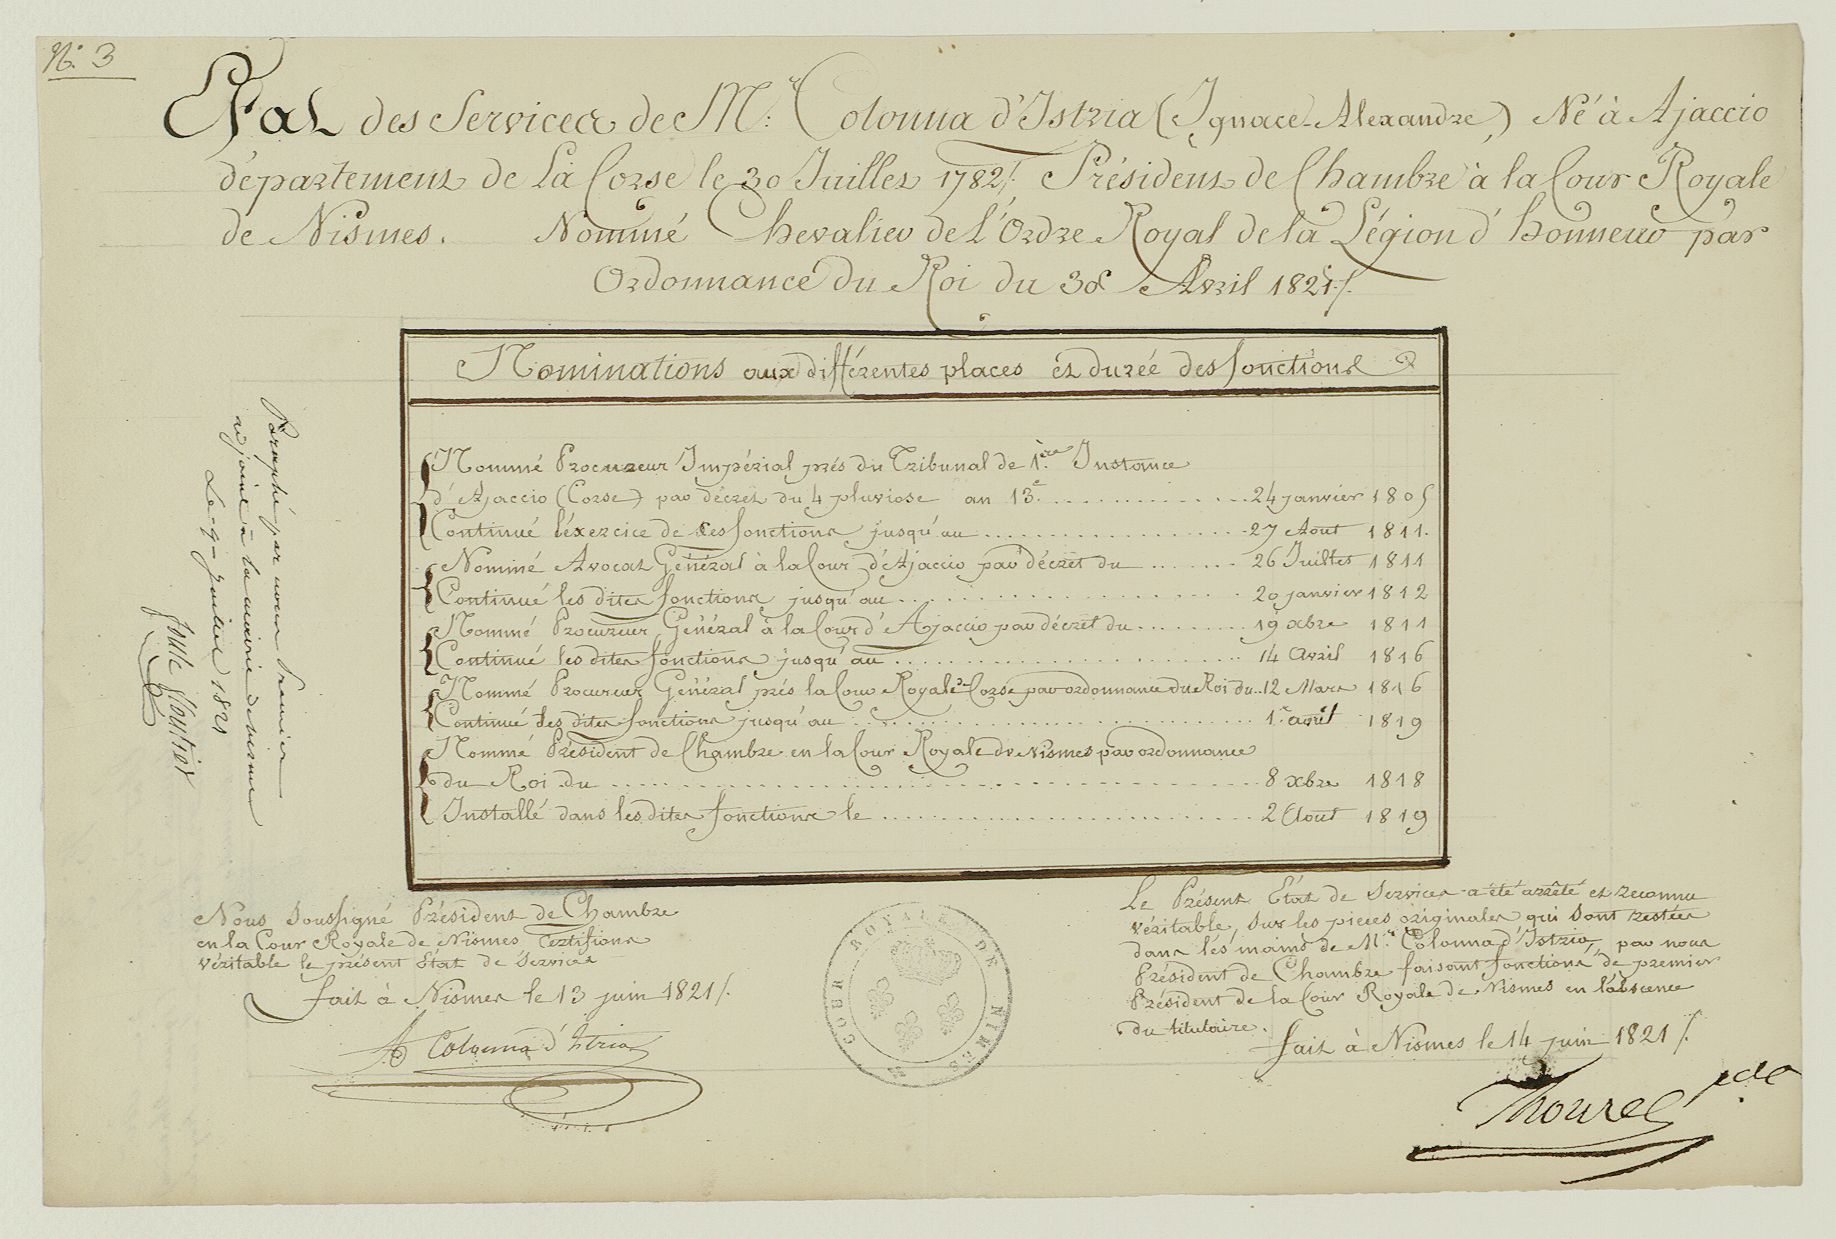 N.° 3
Etat des Services de M.r Colonna d'Istria (Ignace-Alexandre) Né à Ajaccio
département de La Corse le 30 Juillet 1782/. Président de Chambre à la Cour Royale
de Nismes. Nommé Chevalier de L'Ordre Royal de la Légion d'honneur par
Ordonnance du Roi du 30 Avril 1821/.
Nominations aux différentes places et durée des fonctions
Nommé Procureur Impérial prés du Tribunal de 1.ère Instance
d'Ajaccio (Corse) par décret du 4 pluviose an 13.e ............ 24 janvier 1805
Continué l'éxercice de ses fonctions jusqu'au ............ 27 Aout 1811.
Nommé Avocat Général à la Cour d'Ajaccio par décret du ....... 26 Juillet 1811
Continué les dites fonctions jusqu'au ............ 20 janvier 1812
Nommé Procureur Général à la Cour d'Ajaccio par décret du ........ 19 xbre 1811
Continué les dites fonctions jusqu'au ............ 14 Avril 1816
Nommé Procureur Général prés la Cour Royale de Corse par ordonnance du Roi du .. 12 Mars 1816
Continué les dites fonctions jusqu'au ............ 1.er avril 1819
Nommé Président de Chambre en la Cour Royale de Nismes par ordonnance
du Roi du ............ 8 xbre 1818
Installé dans les dites fonctions le ............ 2 Aout 1819
Paraphé par nous Premier
adjoint à la mairie de nismes
Le 9 juillet 1821
Nous Soussigné Président de Chambre
en la Cour Royale de Nismes Certifions
véritable le présent Etat de Services
fait à Nismes le 13 juin 1821/.
A Colonna d'Istria
COUR ROYALE DE NIMES
Le Présent Etat de Services a été arrêté et reconnu
véritable, sur les pieces originales qui sont restées
dans les mains de M.r Colonna d'Istria, par nous
Président de Chambre faisant fonctions de premier
Président de la Cour Royale de Nismes en l'abscence
du titulaire.
fait à Nismes le 14 juin 1821/.
Thourel